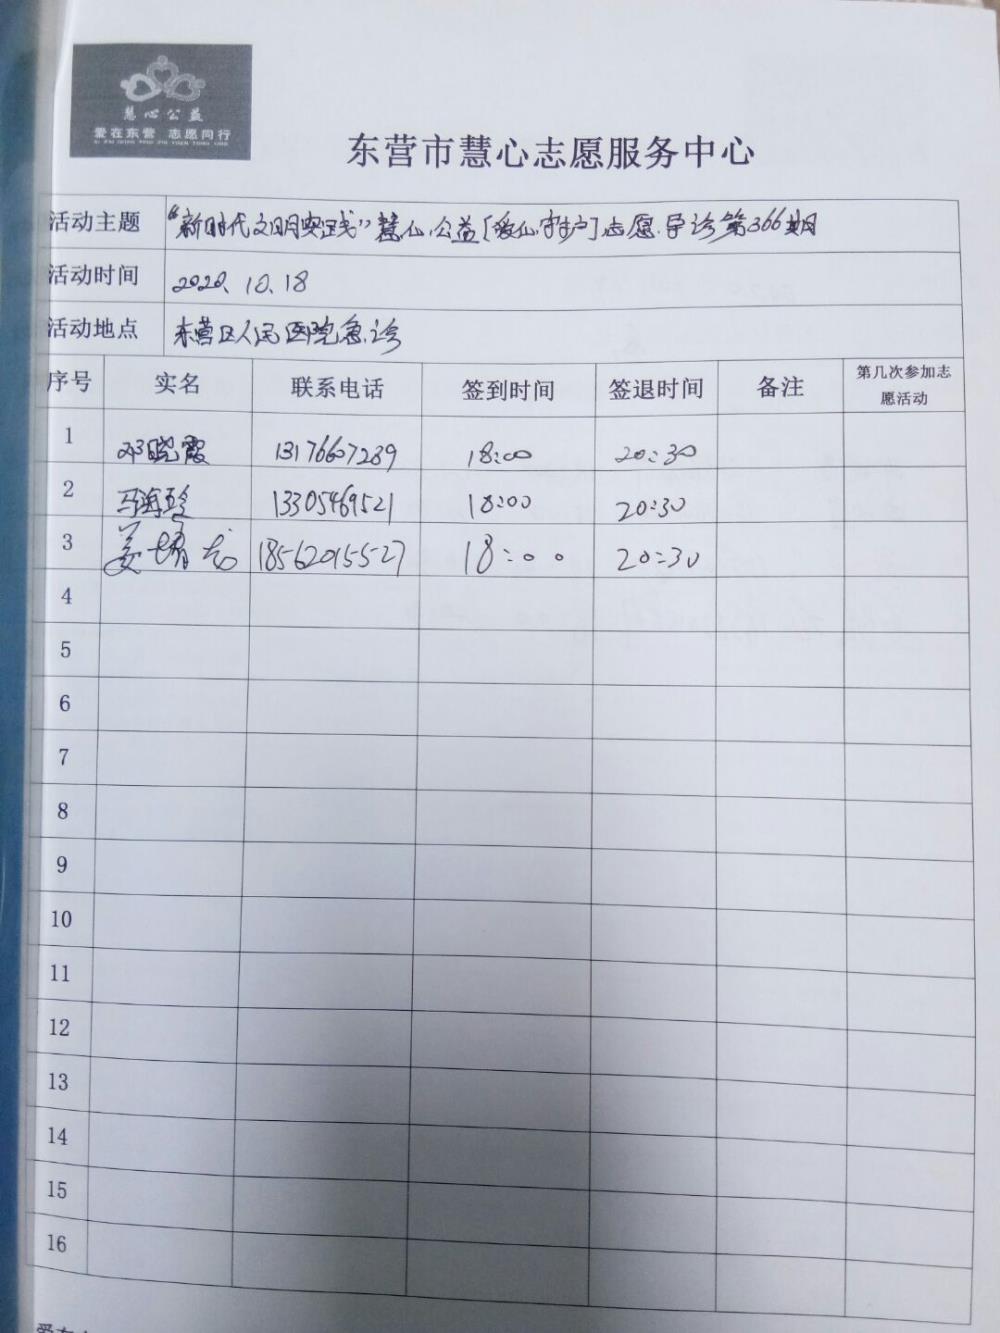 慧心公益
爱在东营 志愿同行
东营市慧心志愿服务中心
活动主题 “新时代文明实践”慧心公益[爱心守护]志愿导诊第366期
活动时间 2020.10.18
活动地点 东营区人民医院急诊
序号 实名 联系电话 签到时间 签退时间 备注 第几次参加志愿活动
1 邓晓霞 13176607289 18:00 20:30
2 马海玲 13305469521 18:00 20:30
3 姜靖 18562015527 18:00 20:30
4
5
6
7
8
9
10
11
12
13
14
15
16